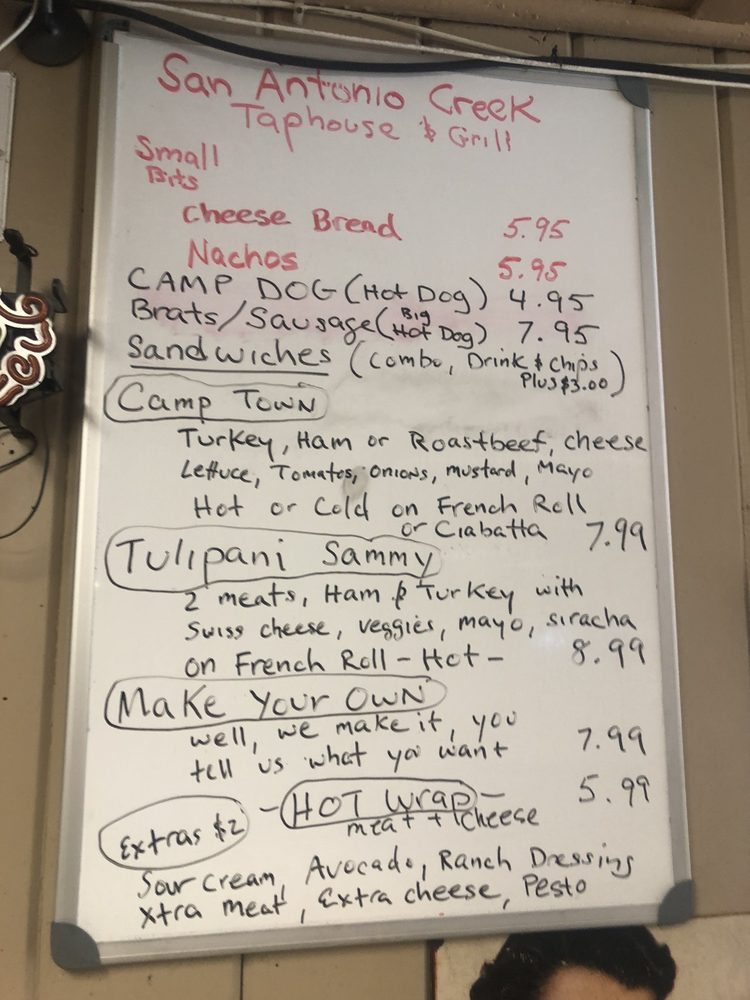 San Antonio Creek
Taphouse & Grill
Small
Bits
Cheese Bread 5.95
Nachos 5.95
CAMP DOG (Hot Dog) 4.95
Brats/Sausage (Big Hot Dog) 7.95
Sandwiches (Combo, Drink & Chips
Plus $3.00)
Camp TOWN
Turkey, Ham or Roastbeef, cheese
Lettuce, Tomatos, onions, mustard, Mayo
Hot or Cold on French Roll
or Ciabatta 7.99
Tulipani Sammy
2 meats, Ham & Turkey with
Swiss cheese, veggies, mayo, siracha
on French Roll - Hot - 8.99
Make Your OWN
well, we make it, you
tell us what you want 7.99
- HOT Wrap - 5.99
meat + cheese
Extras $2
Sour Cream, Avocado, Ranch Dressing
xtra meat, Extra cheese, Pesto